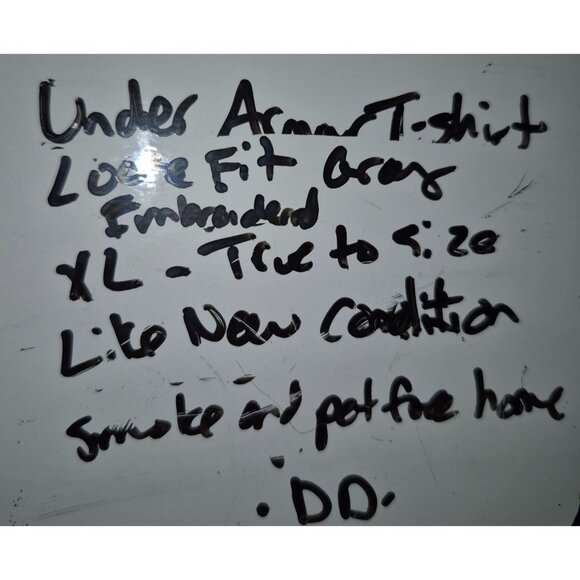 Under Armour T-shirt
Loose Fit Gray
Embroidered
XL - True to size
Like New Condition
Smoke and pet free home
. DD.